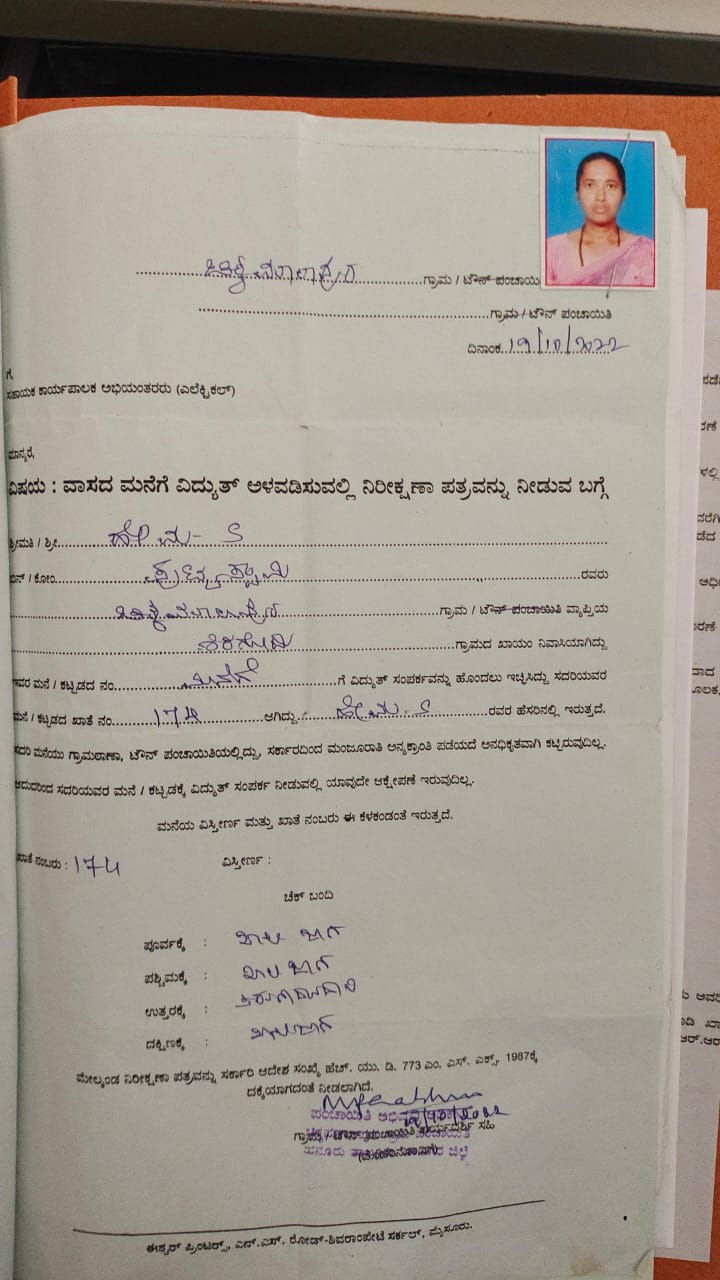 ಗ್ರಾಮ / ಟೌನ್ ಪಂಚಾಯಿ
ಗ್ರಾಮ / ಟೌನ್ ಪಂಚಾಯಿತಿ
ದಿನಾಂಕ 19/10/2022
ಗೆ,
ಸಹಾಯಕ ಕಾರ್ಯಪಾಲಕ ಅಭಿಯಂತರರು (ಎಲೆಕ್ಟ್ರಿಕಲ್)
ಮಾನ್ಯರೆ,
ವಿಷಯ : ವಾಸದ ಮನೆಗೆ ವಿದ್ಯುತ್ ಅಳವಡಿಸುವಲ್ಲಿ ನಿರೀಕ್ಷಣಾ ಪತ್ರವನ್ನು ನೀಡುವ ಬಗ್ಗೆ
ಶ್ರೀಮತಿ / ಶ್ರೀ ಹೇಮ - S
ಬಿನ್ / ಕೋಂ ರವರು
ಗ್ರಾಮ / ಟೌನ್ ಪಂಚಾಯಿತಿ ವ್ಯಾಪ್ತಿಯ
ಗ್ರಾಮದ ಖಾಯಂ ನಿವಾಸಿಯಾಗಿದ್ದು
ಇವರ ಮನೆ / ಕಟ್ಟಡದ ನಂ. ಮನೆಗೆ ಗೆ ವಿದ್ಯುತ್ ಸಂಪರ್ಕವನ್ನು ಹೊಂದಲು ಇಚ್ಛಿಸಿದ್ದು ಸದರಿಯವರ
ಮನೆ / ಕಟ್ಟಡದ ಖಾತೆ ನಂ. 174 ಆಗಿದ್ದು ಹೇಮ - S ರವರ ಹೆಸರಿನಲ್ಲಿ ಇರುತ್ತದೆ.
ಸದರಿ ಮನೆಯು ಗ್ರಾಮಠಾಣಾ, ಟೌನ್ ಪಂಚಾಯಿತಿಯಲ್ಲಿದ್ದು, ಸರ್ಕಾರದಿಂದ ಮಂಜೂರಾತಿ ಅನ್ಯಕ್ರಾಂತಿ ಪಡೆಯದೆ ಅನಧಿಕೃತವಾಗಿ ಕಟ್ಟಿರುವುದಿಲ್ಲ.
ಆದುದರಿಂದ ಸದರಿಯವರ ಮನೆ / ಕಟ್ಟಡಕ್ಕೆ ವಿದ್ಯುತ್ ಸಂಪರ್ಕ ನೀಡುವಲ್ಲಿ ಯಾವುದೇ ಆಕ್ಷೇಪಣೆ ಇರುವುದಿಲ್ಲ.
ಮನೆಯ ವಿಸ್ತೀರ್ಣ ಮತ್ತು ಖಾತೆ ನಂಬರು ಈ ಕೆಳಕಂಡಂತೆ ಇರುತ್ತದೆ.
ಖಾತೆ ನಂಬರು : 174 ವಿಸ್ತೀರ್ಣ :
ಚೆಕ್ ಬಂದಿ
ಪೂರ್ವಕ್ಕೆ : ಖಾಲಿ ಜಾಗ
ಪಶ್ಚಿಮಕ್ಕೆ : ಖಾಲಿ ಜಾಗ
ಉತ್ತರಕ್ಕೆ :
ದಕ್ಷಿಣಕ್ಕೆ : ಖಾಲಿ ಜಾಗ
ಮೇಲ್ಕಂಡ ನಿರೀಕ್ಷಣಾ ಪತ್ರವನ್ನು ಸರ್ಕಾರಿ ಆದೇಶ ಸಂಖ್ಯೆ ಹೆಚ್. ಯು. ಡಿ. 773 ಎಂ. ಎಸ್. ಎಕ್ಸ್. 1987ಕ್ಕೆ
ದಕ್ಕೆಯಾಗದಂತೆ ನೀಡಲಾಗಿದೆ.
ಪಂಚಾಯಿತಿ
19/10/2022
ಗ್ರಾಮ / ಟೌನ್ ಪಂಚಾಯಿತಿ ಕಾರ್ಯದರ್ಶಿ ಸಹಿ
ಹನೂರು ಜಿಲ್ಲೆ
ಈಶ್ವರ್ ಪ್ರಿಂಟರ್ಸ್, ಎನ್.ಎಸ್. ರೋಡ್-ಶಿವರಾಂಪೇಟೆ ಸರ್ಕಲ್, ಮೈಸೂರು.